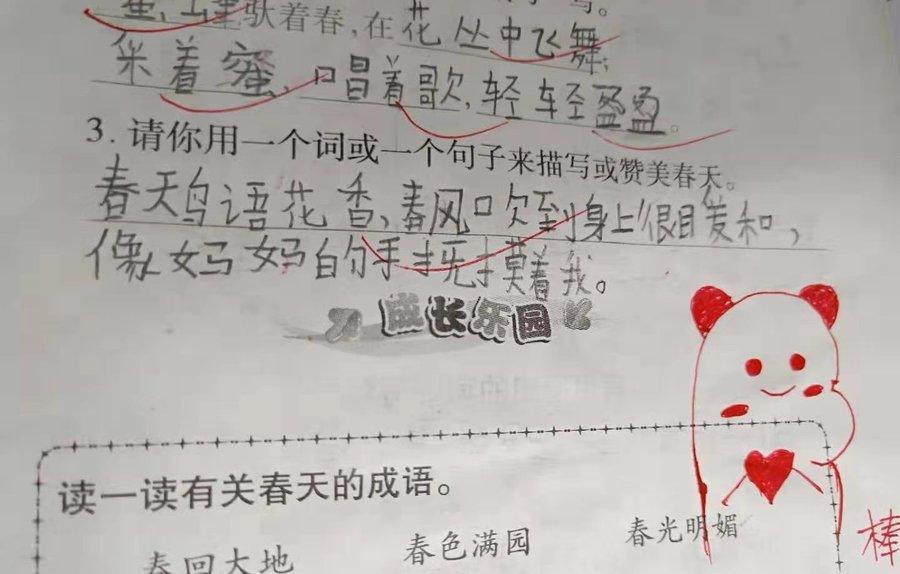 驮着春,在花丛中飞舞;
采着蜜,唱着歌,轻轻盈盈。
3. 请你用一个词或一个句子来描写或赞美春天。
春天鸟语花香,春风吹到身上很暖和,
像妈妈的手抚摸着我。
成长乐园
读一读有关春天的成语。
春回大地 春色满园 春光明媚
棒